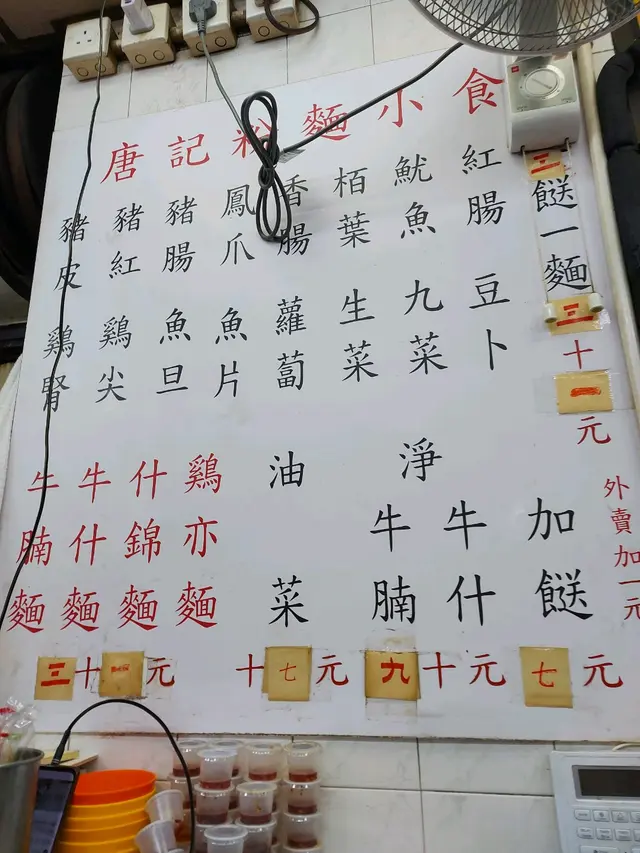 唐記粉麵小食
三餸一麵三十一元
紅腸
魷魚
栢葉
香腸
鳳爪
豬腸
豬紅
豬皮
豆卜
九菜
生菜
蘿蔔
魚片
魚旦
鷄尖
鷄腎
外賣加一元
加餸
七元
淨
牛什
牛腩
九十元
油菜
十七元
鷄亦麵
什錦麵
牛什麵
牛腩麵
三十元